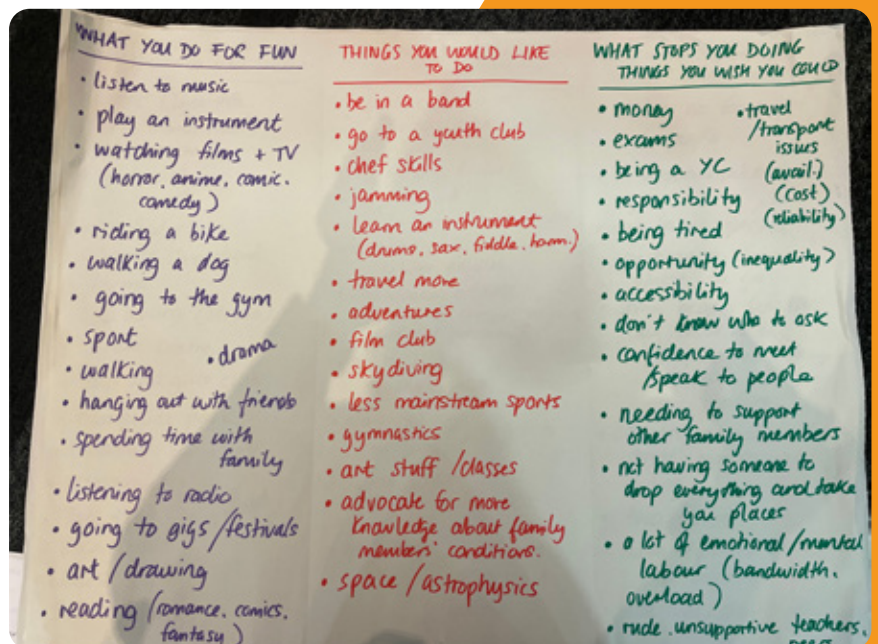 WHAT YOU DO FOR FUN
• listen to music
• play an instrument
• watching films + TV
(horror, anime, comic.
comedy)
• riding a bike
• walking a dog
• going to the gym
• sport
• drama
• walking
• hanging out with friends
• spending time with
family
• listening to radio
• going to gigs/festivals
• art/drawing
• reading (romance, comics,
fantasy)
THINGS YOU WOULD LIKE
TO DO
• be in a band
• go to a youth club
• chef skills
• jamming
• learn an instrument
(drums, sax, fiddle, harm.)
• travel more
• adventures
• film club
• skydiving
• less mainstream sports
• gymnastics
• art stuff/classes
• advocate for more
knowledge about family
members' conditions.
• space/astrophysics
WHAT STOPS YOU DOING
THINGS YOU WISH YOU COULD
• money
• exams
• being a YC
• responsibility
• travel
/transport
issues
(avail.)
(cost)
(reliability)
• being tired
• opportunity (inequality)
• accessibility
• don't know who to ask
• confidence to meet
/speak to people
• needing to support
other family members
• not having someone to
drop everything and take
you places
• a lot of emotional/mental
labour (bandwidth.
overload)
• rude, unsupportive teachers,